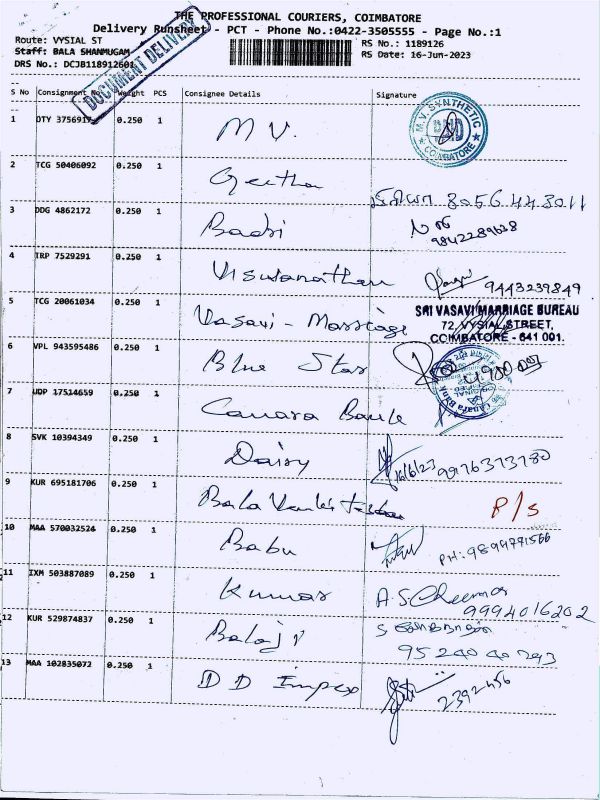 THE PROFESSIONAL COURIERS, COIMBATORE
Delivery Runsheet - PCT - Phone No.:0422-3505555 - Page No.:1
Route: VYSIAL ST
RS No.: 1189126
Staff: BALA SHANMUGAM
RS Date: 16-Jun-2023
DRS No.: DCJB118912601
DOCUMENT DELIVERY
S No Consignment No Weight PCS Consignee Details Signature
1 DTY 3756917 0.250 1 M V.
M.V. SYNTHETIC
COIMBATORE
2 TCG 50406092 0.250 1 Geetha
8056443011
3 DDG 4862172 0.250 1 Badri
4 TRP 7529291 0.250 1 Viswanathan 9443239849
5 TCG 20061034 0.250 1 Vasavi - Marriage
SRI VASAVI MARRIAGE BUREAU
72, VYSIAL STREET,
COIMBATORE - 641 001.
6 VPL 943595486 0.250 1 Blue Star
7 UDP 17514659 0.250 1 Canara Bank
Canara Bank
8 SVK 10394349 0.250 1 Daisy 16/6/23 9976373780
9 KUR 695181706 0.250 1 Bala P/S
10 MAA 570032524 0.250 1 Babu PH: 9894771566
11 IXM 503887089 0.250 1 Kumar A.S
9994016202
12 KUR 529874837 0.250 1 Balaji S
9524040293
13 MAA 102835072 0.250 1 D D Impex 2392456